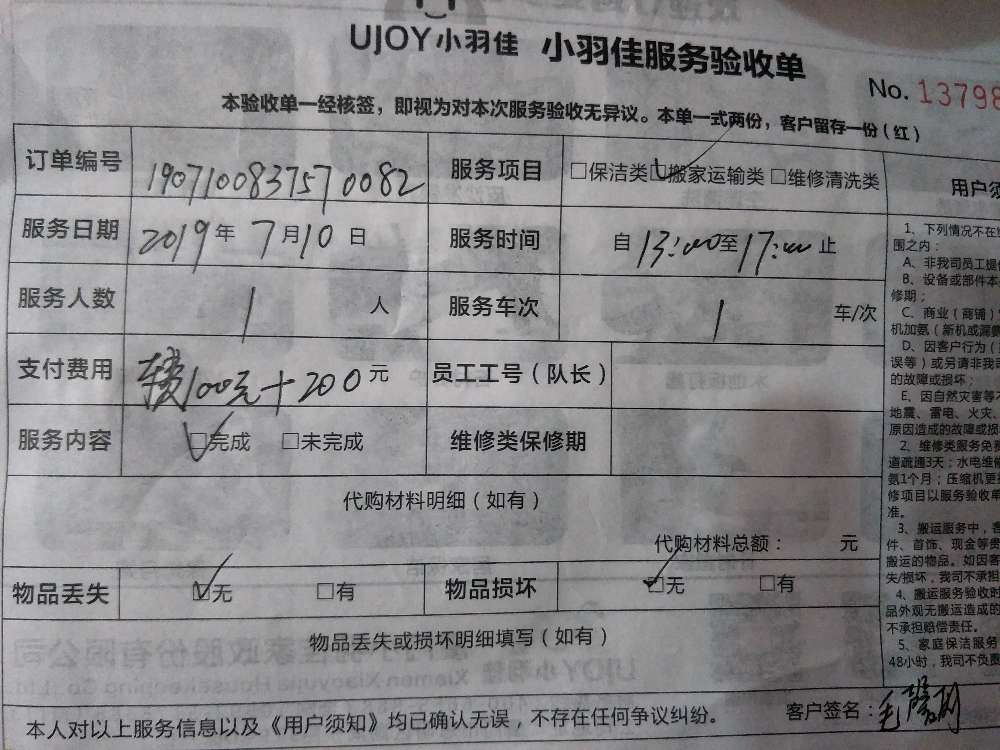 UJOY小羽佳 小羽佳服务验收单
No. 13798
本验收单一经核签，即视为对本次服务验收无异议。本单一式两份，客户留存一份（红）
订单编号 1907100837570082 服务项目 □保洁类 ☑搬家运输类 □维修清洗类
服务日期 2019年7月10日 服务时间 自13:00至17:00止
服务人数 1人 服务车次 1 车/次
支付费用 100元+200元 员工工号（队长）
服务内容 ☑完成 □未完成 维修类保修期
代购材料明细（如有）
代购材料总额： 元
物品丢失 ☑无 □有 物品损坏 ☑无 □有
物品丢失或损坏明细填写（如有）
本人对以上服务信息以及《用户须知》均已确认无误，不存在任何争议纠纷。 客户签名：毛
用户须
1、下列情况不在
围之内：
A、非我司员工提
B、设备或部件本
修期；
C、商业（商铺）
机加氨（新机或漏
D、因客户行为（
误等）或另请非我
的故障或损坏；
E、因自然灾害等不
地震、雷电、火灾、
原因造成的故障或损
2、维修类服务免费
道疏通3天；水电维修
氨1个月；压缩机更
修项目以服务验收单
准。
3、搬运服务中，客
件、首饰、现金等贵
搬运的物品。如因客
失/损坏，我司不承担
4、搬运服务验收时
品外观无搬运造成的
不承担赔偿责任。
5、家庭保洁服务
48小时，我司不负责